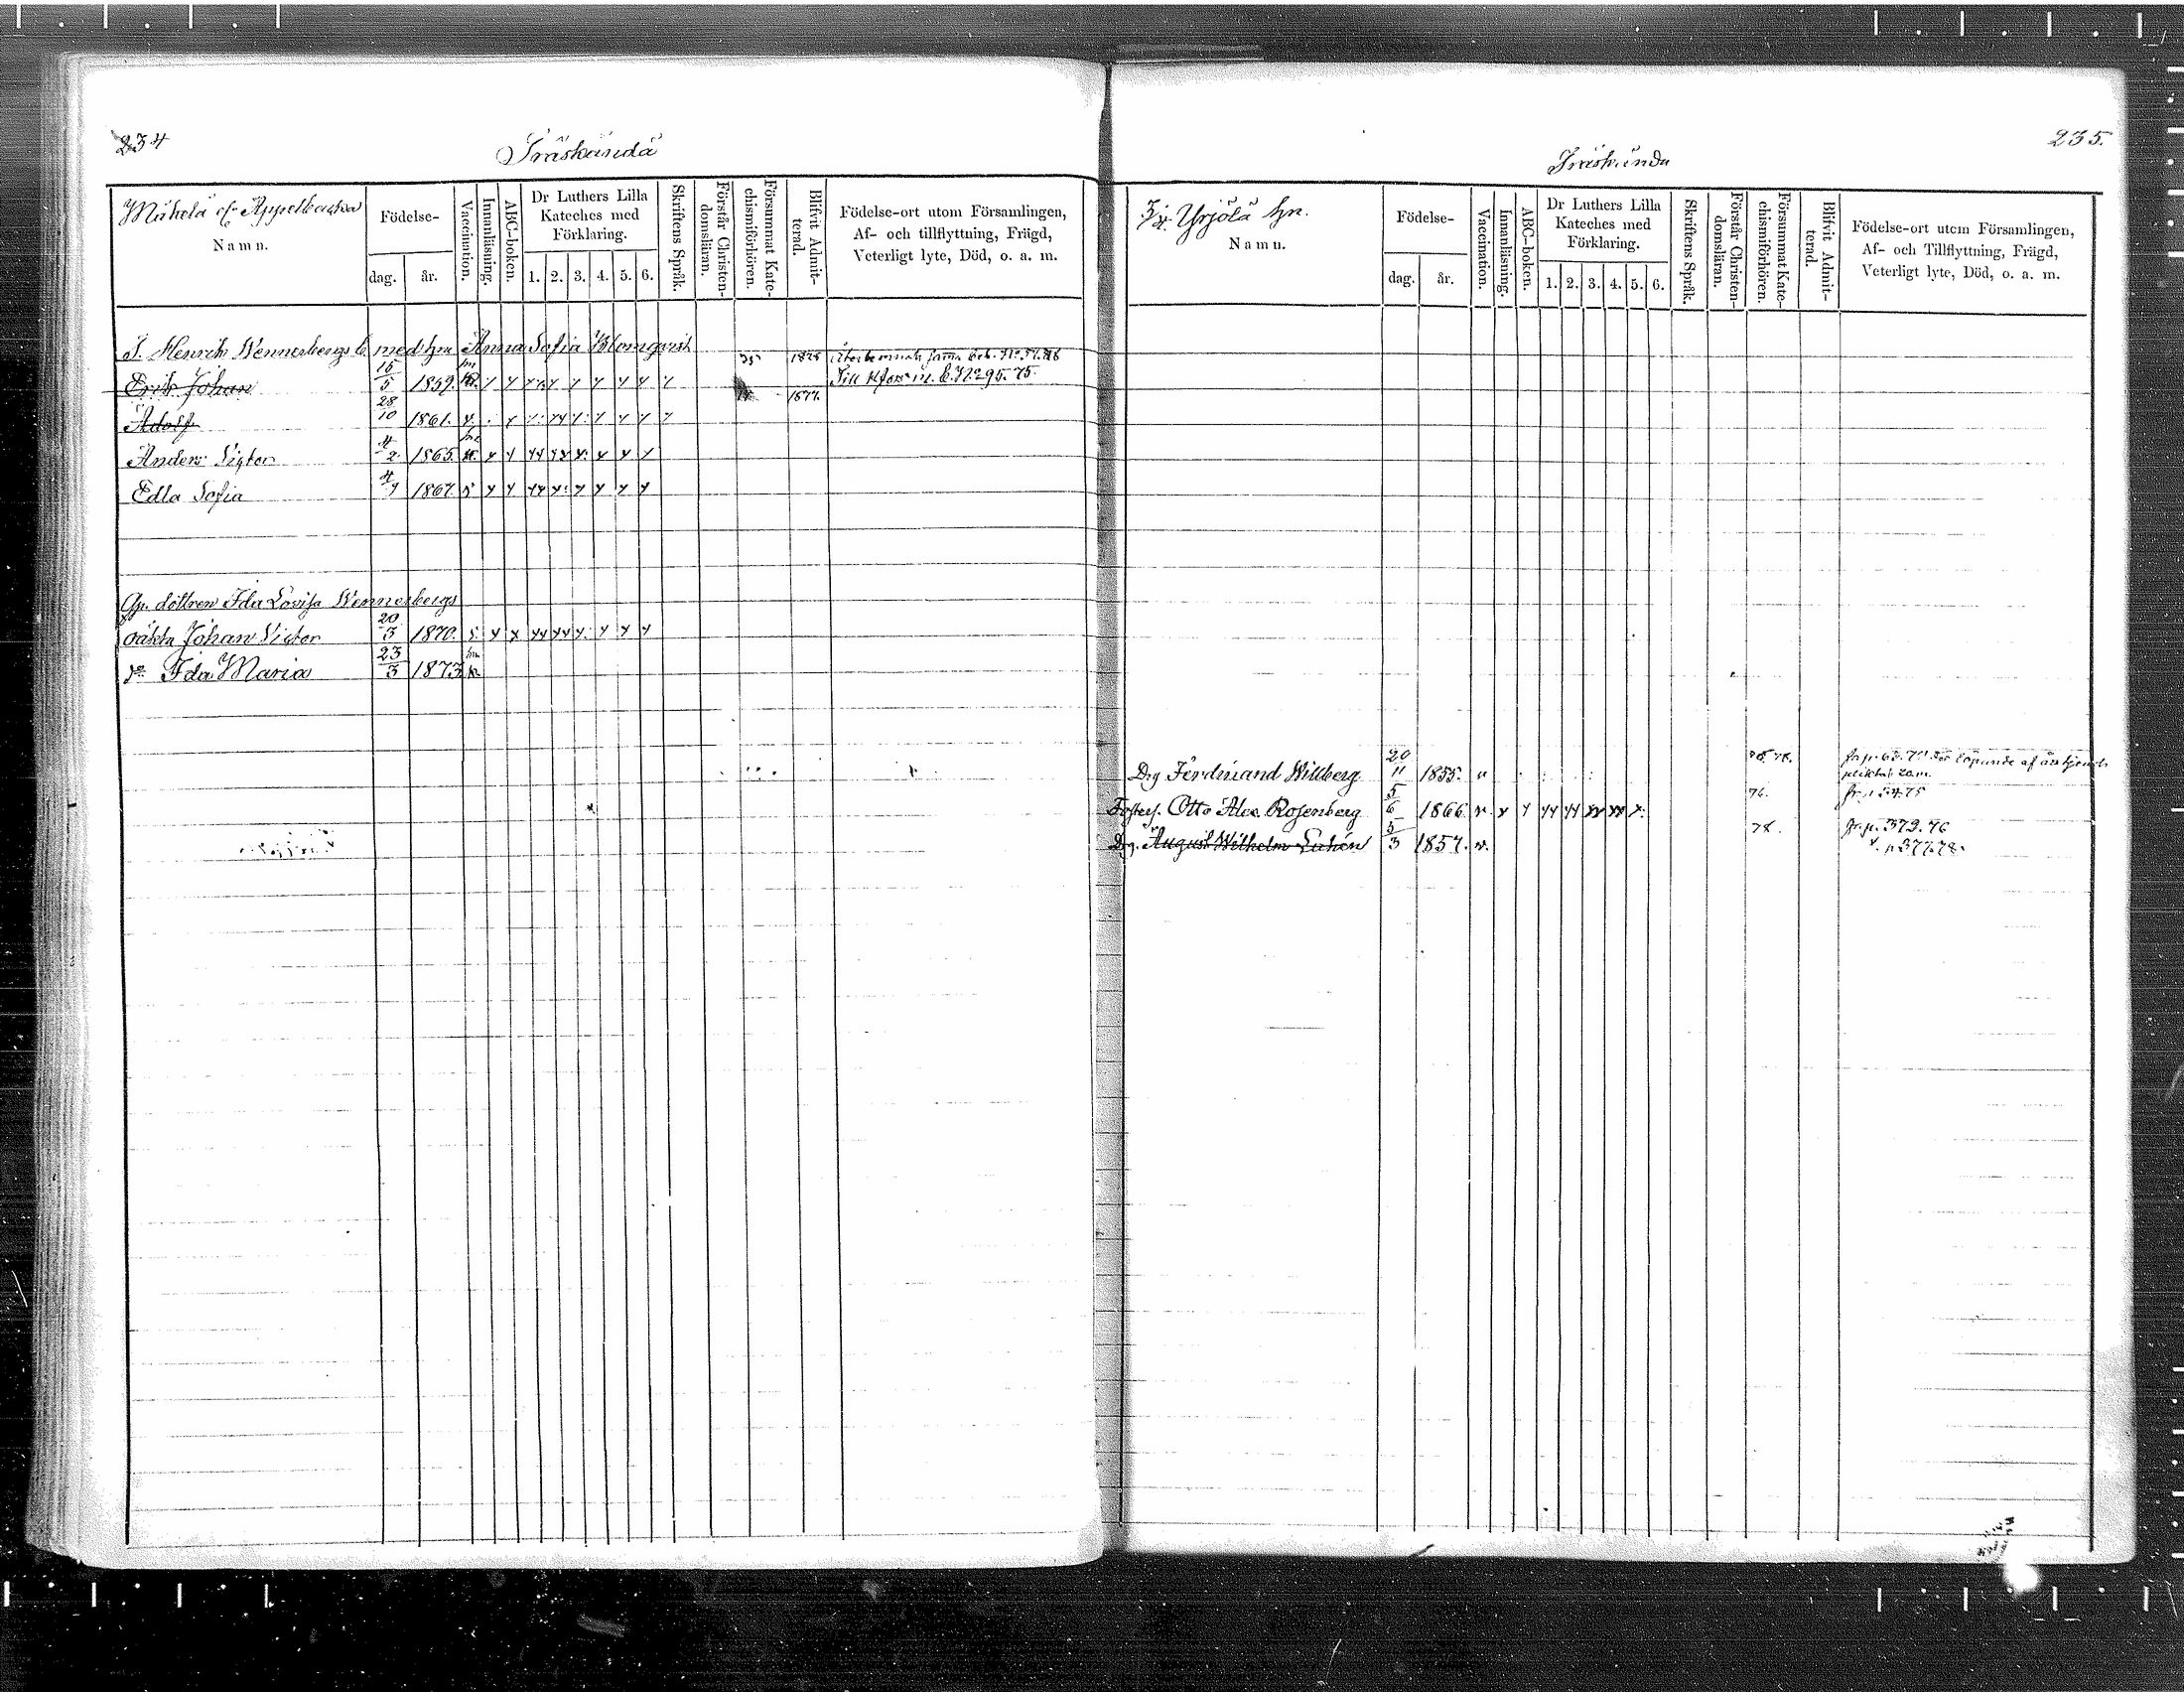 234
Träskända
Mikelä el. Appelbacka
Namn.
Födelse-
dag.
år.
Vaccination.
Innanläsning.
ABC-boken.
Dr Luthers Lilla
Kateches med
Förklaring.
1. 2. 3. 4. 5. 6.
Skriftens Språk.
Förstår Christen-
domsläran.
Försummat Kate-
chismiförhören.
Blifvit Admit-
terad.
Födelse-ort utom Församlingen,
Af- och tillflyttning, Frägd,
Veterligt lyte, Död, o. a. m.
J. Henrik Wennerbergs b. med hu Anna Sofia Blomqvist
Erik Johan 15/5 1859. 1878
Till Hfors m. b. No 295. 75.
Adolf 28/10 1861. 1877.
Anders Victor 4/2 1865.
Edla Sofia 4/7 1867.
Gp. dottren Ida Lovisa Wennerbergs
oäkta Johan Victor 20/3 1870.
do Ida Maria 23/3 1873
235.
Träskända
Yrjölä hn.
Namn.
Födelse-
dag.
år.
Vaccination.
Innanläsning.
ABC-boken.
Dr Luthers Lilla
Kateches med
Förklaring.
1. 2. 3. 4. 5. 6.
Skriftens Språk.
Förstår Christen-
domsläran.
Försummat Kate-
chismiförhören.
Blifvit Admit-
terad.
Födelse-ort utom Församlingen,
Af- och Tillflyttning, Frägd,
Veterligt lyte, Död, o. a. m.
Drg Ferdinand Willberg 20/11 1855.
Fosters. Otto Alex. Rosenberg 5/6 1866. 76. fr. p. 54. 75
Drg. August Wilhelm Luhén 5/3 1857. v. 78. fr. p. 379. 76
p. 377. 78.